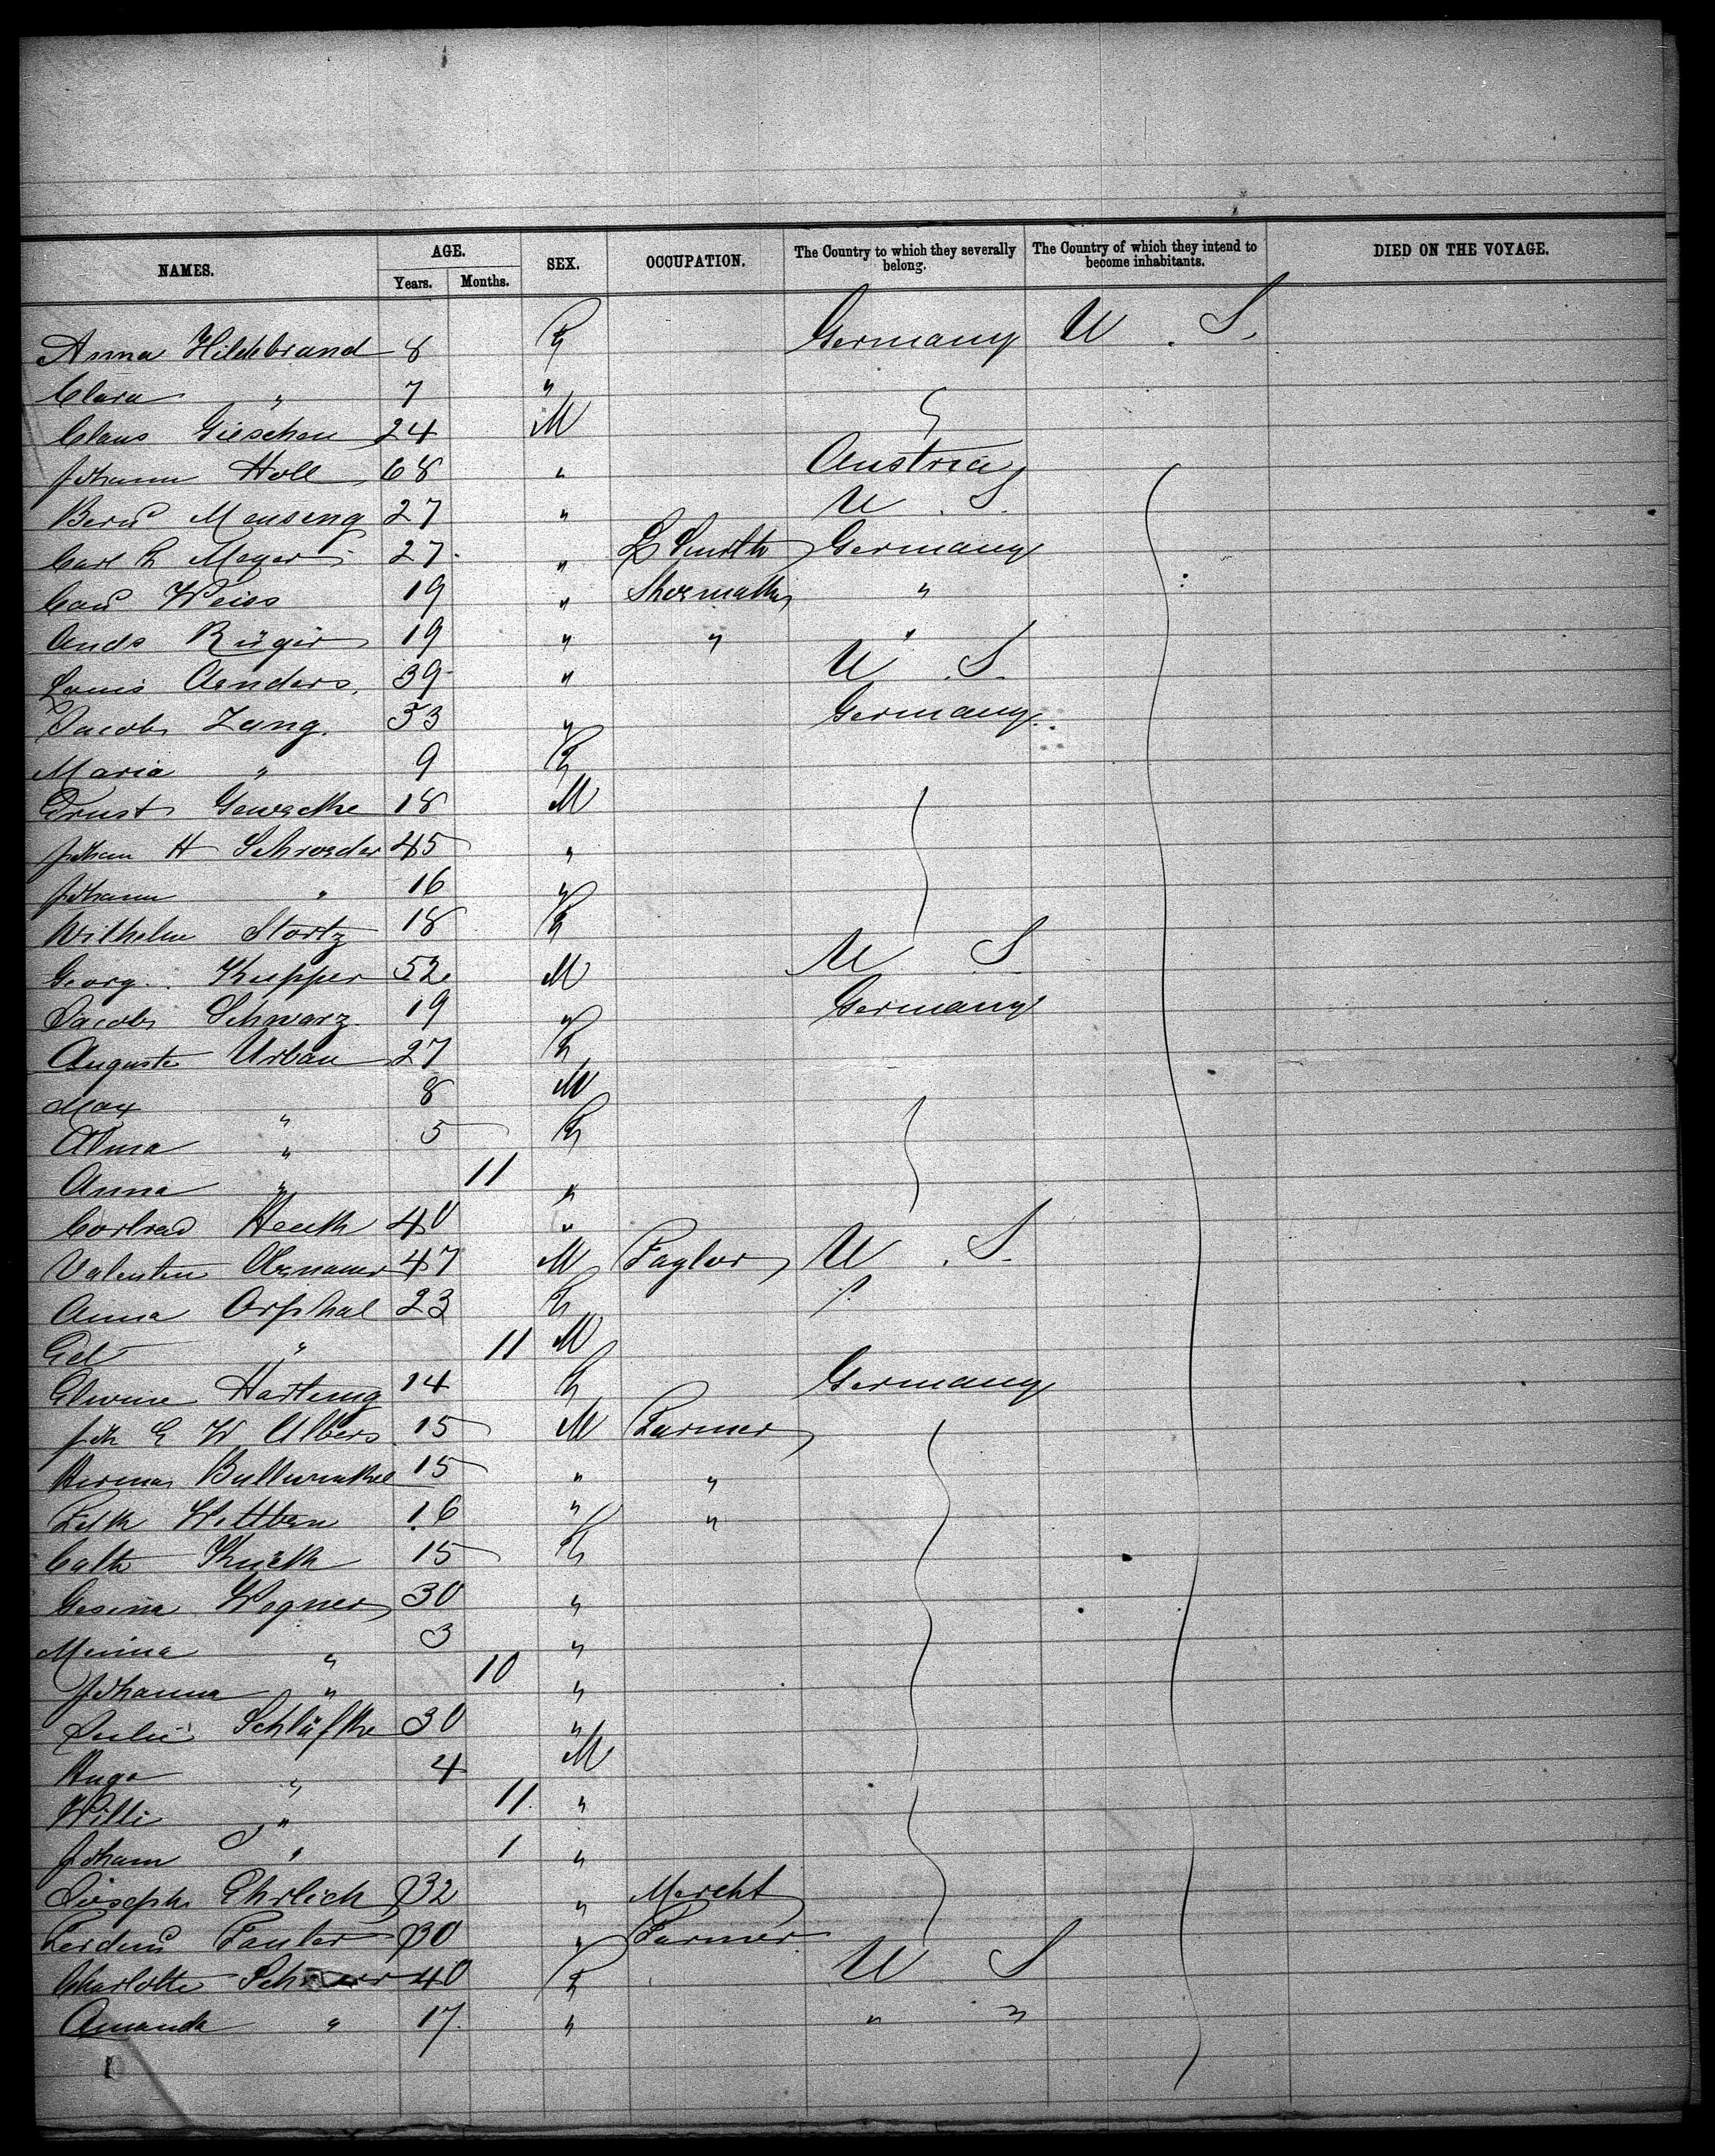 NAMES. AGE. SEX. OCCUPATION. The Country to which they severally belong. The Country of which they intend to become inhabitants. DIED ON THE VOYAGE.
Years. Months.
Anna Hildebrand 8 F Germany U. S.
Clara " 7 "
Claus Gieschen 24 M
Johann Holl 68 " Austria
Bernd Menseng 27 " U. S.
Carl F Meyer 27 " Smith Germany
Weiss 19 " "
Ands Rüger 19 " " "
Louis Aenders 39 " U. S.
Jacob Zang. 53 " Germany
Maria " 9 F
Ernst 18 M
Johan H Schroeder 45 "
Johann " 16 "
Wilhelm Stortz 18 F
Georg. Kupper 52 M U S
Jacob Schwarz 19 " Germany
Auguste Urban 27 F
Max " 8 M
Alma " 5 F
Anna " 11 "
40 "
Valentin 47 M Taylor U. S.
Anna Orphal 23 F
Ed " 11 M
Elwine Hartung 14 F Germany
Joh E W Albers 15 M Farmer
Herman Bullwinkel 15 " "
Wittben 16 " "
Cath 15 F
Gesina Wegner 30 "
Minna " 3 "
Johanna " 10 "
Julie Schläfke 30 "
Hugo " 4 M
Willi " 11 "
Joham " 1 "
Joseph Ehrlich 32 " Mercht
Ferdind 30 " Farmer
Charlotte 40 F U S
Amanda " 17 " " "